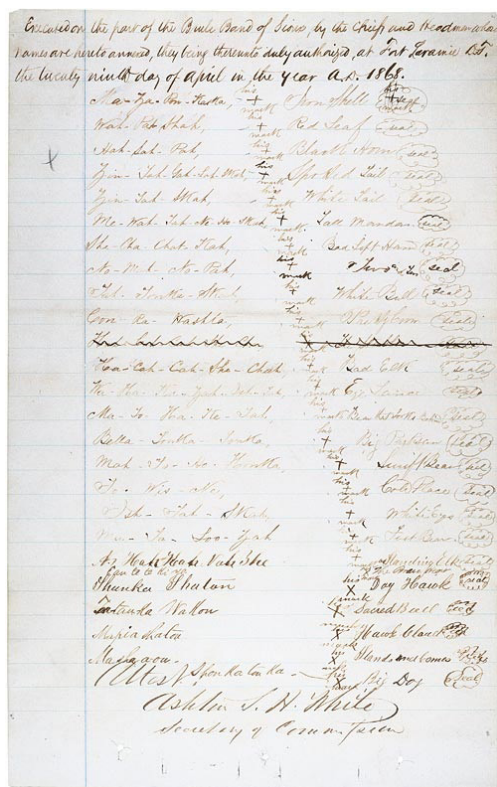 Executed on the part of the Brule Band of Sioux, by the chiefs and headmen whose
names are hereto annexed, they being thereunto duly authorized, at Fort Laramie D.T.
the twenty ninth day of April in the year A.D. 1868.
Ma-Za-Pon-Kaska, his + mark Iron Shell seal
Wah-Pat-Shah, his + mark Red Leaf seal
Hah-Sah-Pah, his + mark Black Horn seal
Zin-Tah-Gah-Lat-Wat, his + mark Spotted Tail seal
Zin-Tah-Skah, his + mark White Tail seal
Me-Wah-Tah-Ne-Ho-Skah, his + mark Tall Mandan seal
She-Cha-Chat-Kah, his + mark Bad Left Hand seal
No-Mah-No-Pah, his + mark Two & Two seal
Tah-Tonka-Skah, his + mark White Bull seal
Con-Ra-Washta, his + mark
Ha-Cah-Cah-She-Chah, his + mark Bad Elk seal
his + mark Eye Lance seal
Ma-To-Ha-Ke-Tah, his + mark Bear that looks behind seal
Bella-Tonka-Tonka, his + mark Big Partisan seal
Mah-To-Ho-Honka, his + mark Swift Bear seal
To-Wis-Ne, his + mark Cold Place seal
Ish-Tah-Skah, his + mark White Eyes seal
Ma-Ta-Loo-Zah his + mark Fast Bear seal
As Hah Kah-Nah-She Standing Elk seal
Can-te-te-ki-ya
Shunka Shaton his X mark Day Hawk seal
Tatanka Wakon his X mark Sacred Bull seal
Mapia Shaton his X mark Hawk Cloud seal
Masha a ow his X mark Stands and comes seal
Shon ka ton ka his X mark Big Dog seal
Attest
Ashton S. H. White
Secretary of Commission